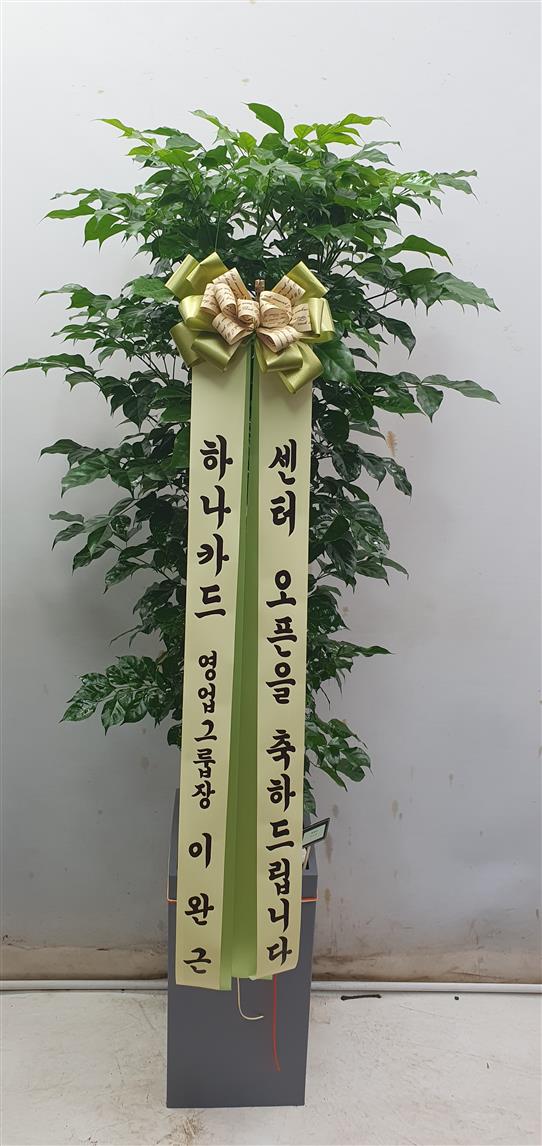 하나카드 영업그룹장 이완근
센터 오픈을 축하드립니다